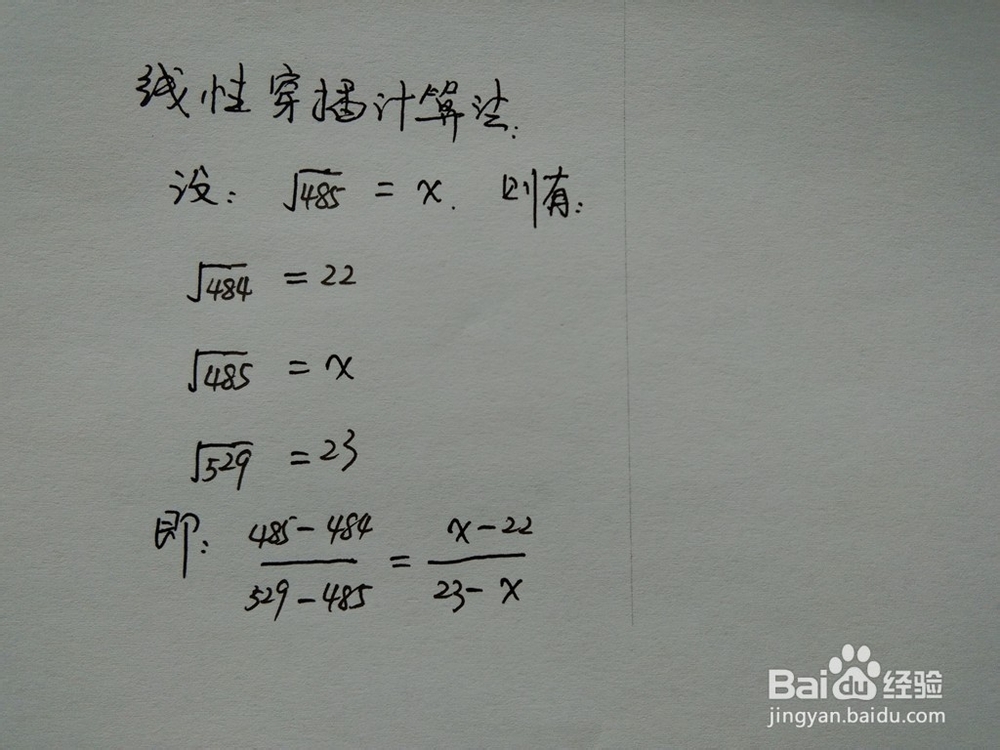 线性穿插计算法:
设: √485 = x. 则有:
√484 = 22
√485 = x
√529 = 23
即: (485-484)/(529-485) = (x-22)/(23-x)
Baidu经验
jingyan.baidu.com